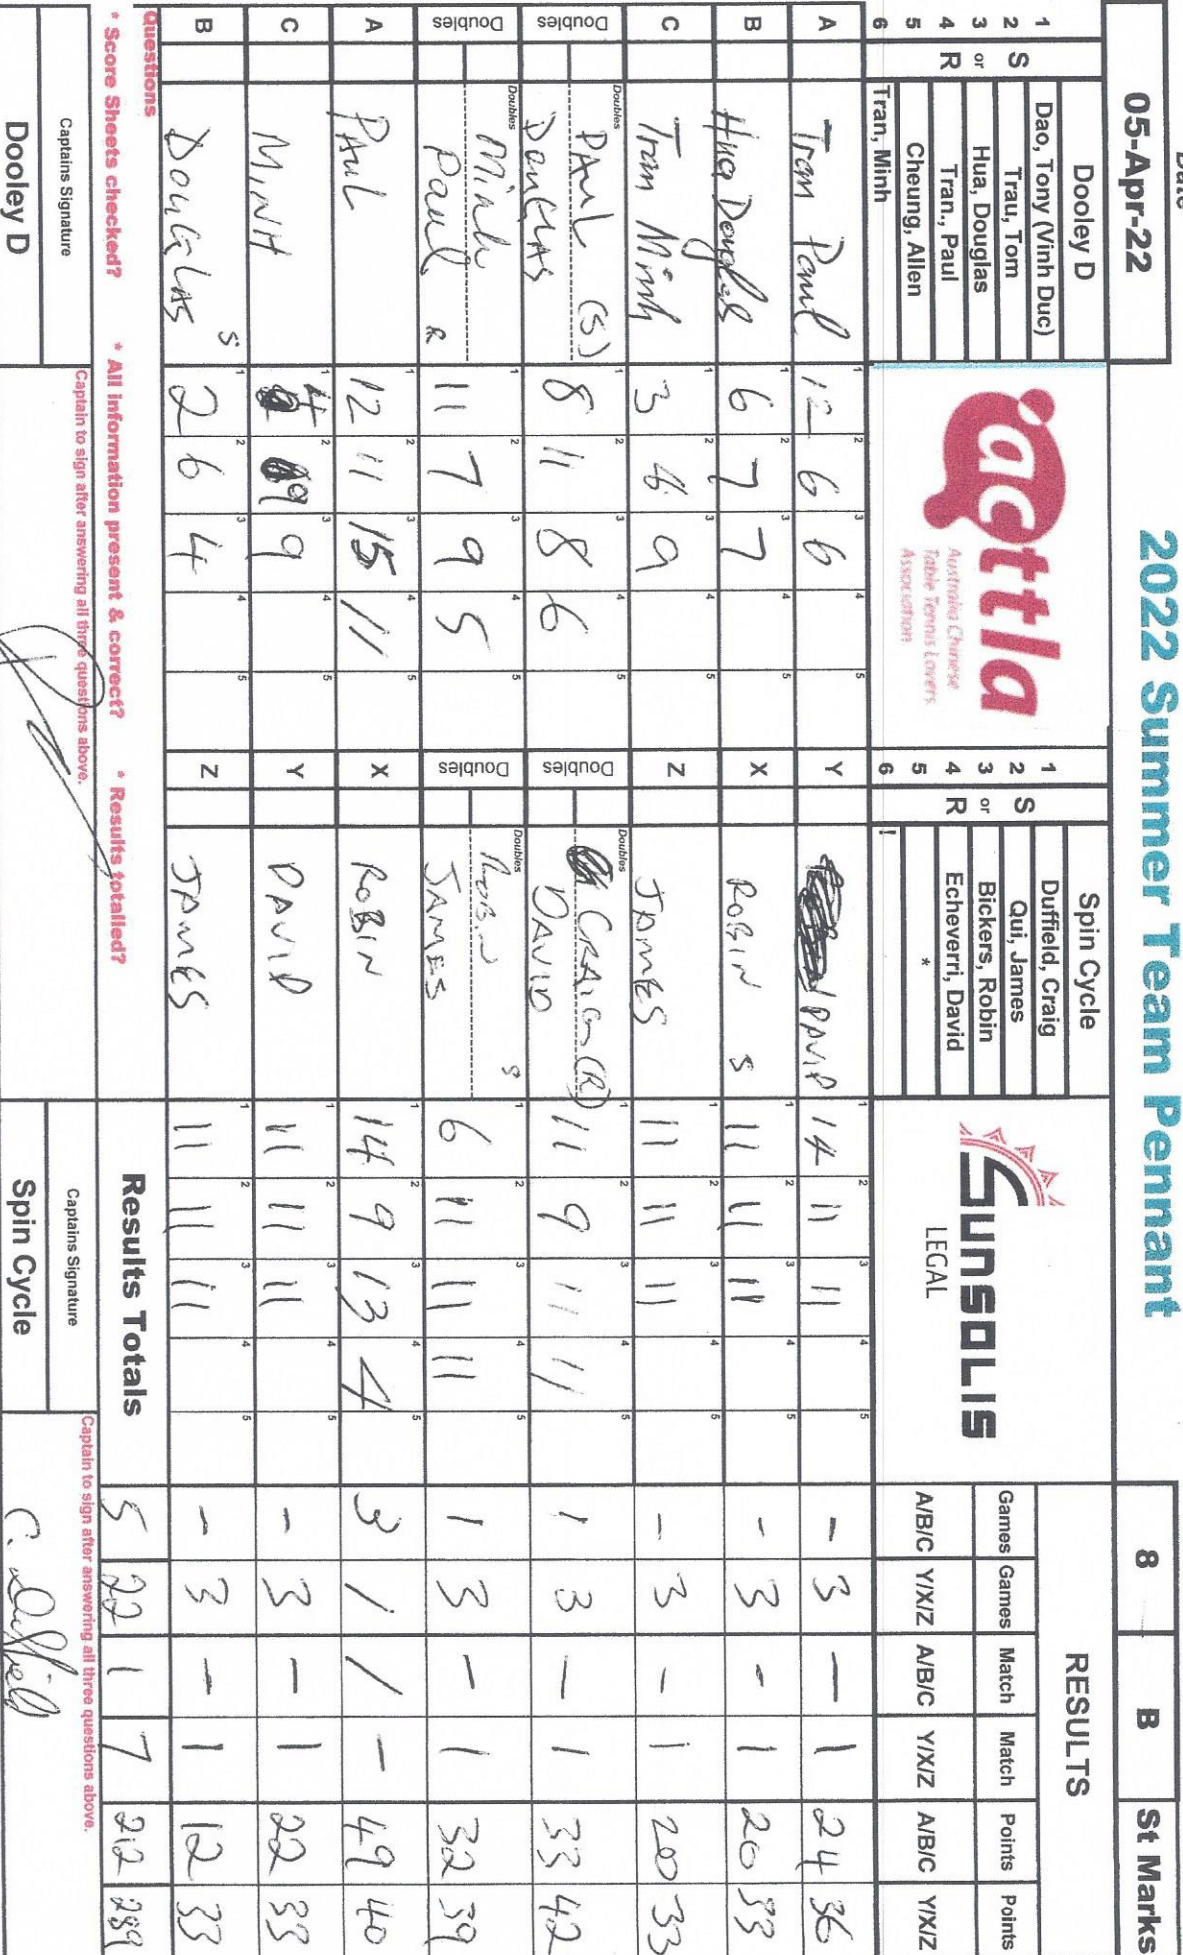 2022 Summer Team Pennant
05-Apr-22
8 B St Marks
Dooley D
1 Dao, Tony (Vinh Duc)
2 S Trau, Tom
3 or Hua, Douglas
4 R Tran., Paul
5 Cheung, Allen
6 Tran, Minh
actta
Australia Chinese
Table Tennis Lovers
Association
Spin Cycle
1 Duffield, Craig
2 S Qui, James
3 or Bickers, Robin
4 R Echeverri, David
5 *
6 !
SUNSOLIS
LEGAL
RESULTS
Games Games Match Match Points Points
A/B/C Y/X/Z A/B/C Y/X/Z A/B/C Y/X/Z
A Tran Paul 12 6 6 Y DAVID 14 11 11 - 3 - 1 24 36
B Hua Douglas 6 7 7 X ROBIN S 11 11 11 - 3 - 1 20 33
C Tran Minh 3 9 Z JAMES 11 11 11 - 3 - 1 20 33
Doubles Doubles PAUL (S) 8 11 8 6 Doubles Doubles CRAIG (R) 11 9 11 11 1 3 - 1 33 42
DOUGLAS DAVID
Doubles Doubles Minh 11 7 9 5 Doubles Doubles ROBIN S 6 11 11 11 1 3 - 1 32 39
Paul R JAMES
A PAUL 12 11 15 11 X ROBIN 14 9 13 4 3 1 1 - 49 40
C MINH 4 9 9 Y DAVID 11 11 11 - 3 - 1 22 33
B DOUGLAS S 2 6 4 Z JAMES 11 11 11 - 3 - 1 12 33
Questions
* Score Sheets checked? * All information present & correct? * Results totalled?
Results Totals 5 22 1 7 212 289
Captains Signature
Captain to sign after answering all three questions above.
Dooley D
Captains Signature
Captain to sign after answering all three questions above.
Spin Cycle
C. Duffield